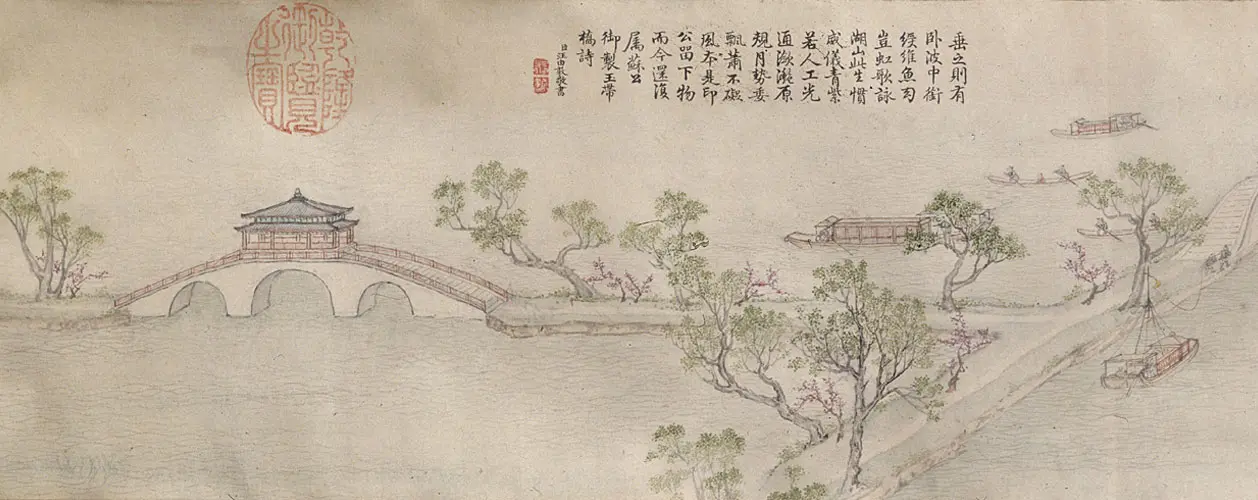 垂之則有
卧波中銜
綬維魚司
豈虹歌詠
湖山此生慣
威儀青紫
若人工光
通潋灔原
規月勢委
飄蕭不礙
風本是印
公留下物
而今還復
屬蘇公
御製玉帶
橋詩
臣汪由敦敬書
乾隆御覽之寶